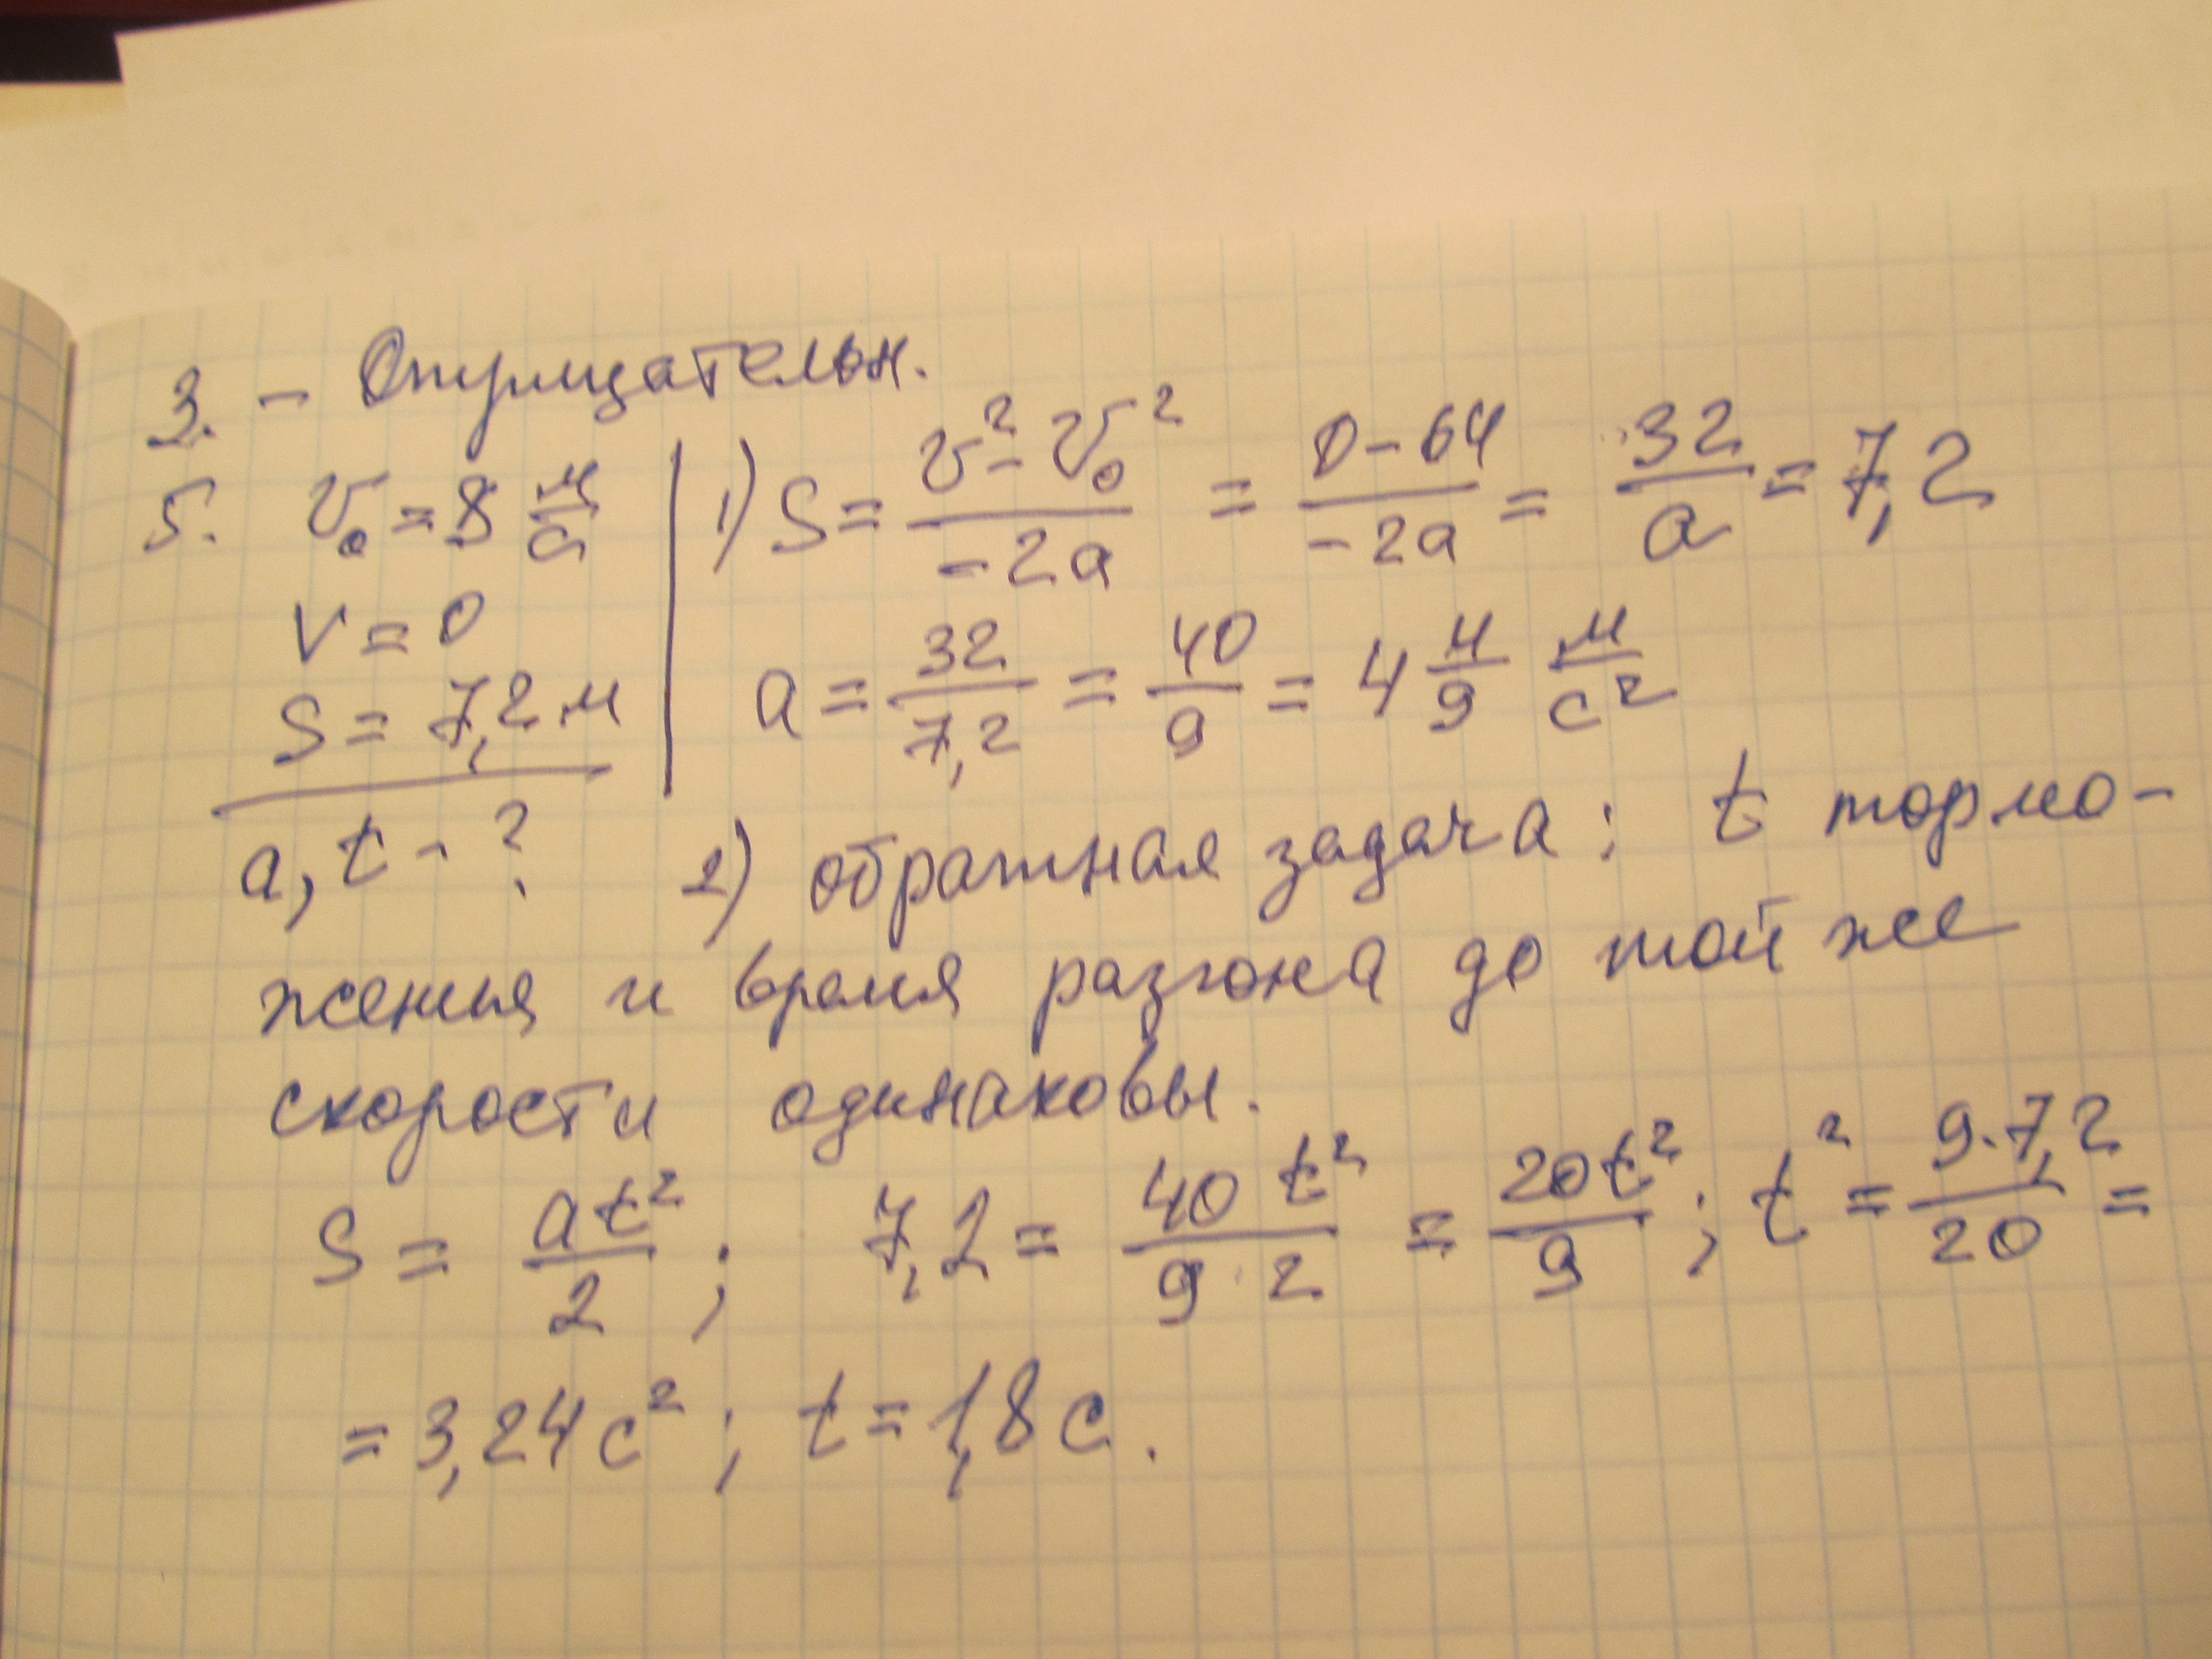 3. - Отрицательн.
5. v₀ = 8 м/с | 1) S = (v² - v₀²)/(-2a) = (0 - 64)/(-2a) = 32/a = 7,2
v = 0
S = 7,2 м | a = 32/7,2 = 40/9 = 4 4/9 м/с²
a, t - ? 2) обратная задача: t тормо-
жения и время разгона до той же
скорости одинаковы.
S = at²/2; 7,2 = 40 t²/(9·2) = 20t²/9; t² = 9·7,2/20 =
= 3,24 с²; t = 1,8 с.